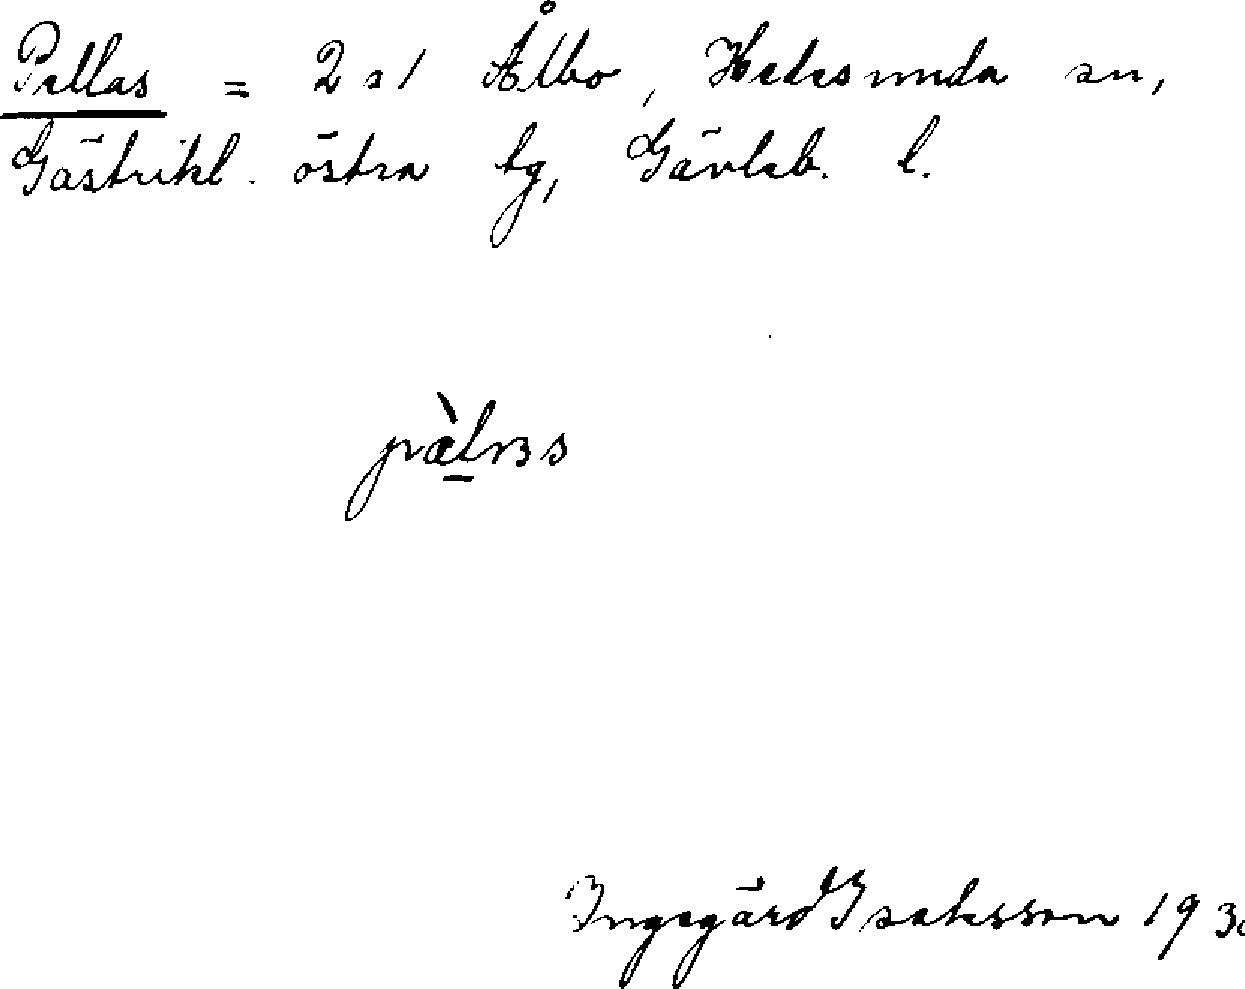 Pellas = 2a1 Ålbo, Hedesunda sn,
Gästrikl. östra tg, Gävleb. l.
Ingegärd Isaksson